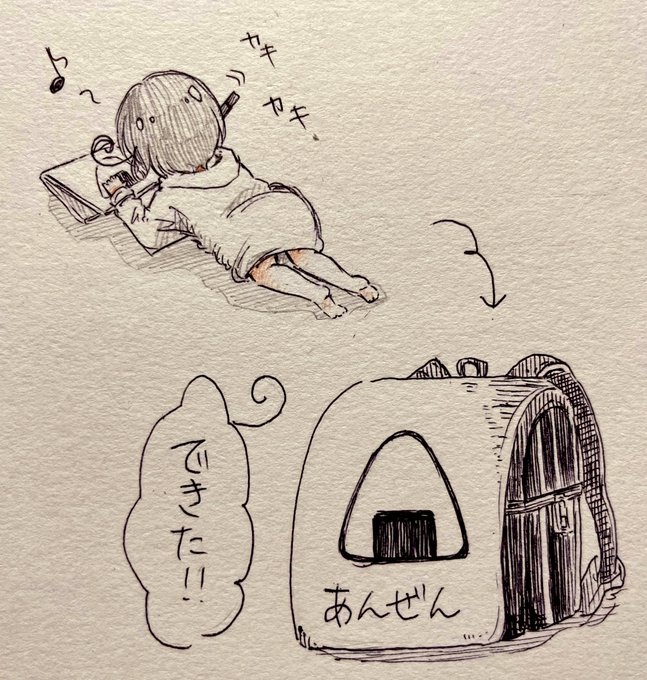 カキ
カキ
できた!!
あんぜん